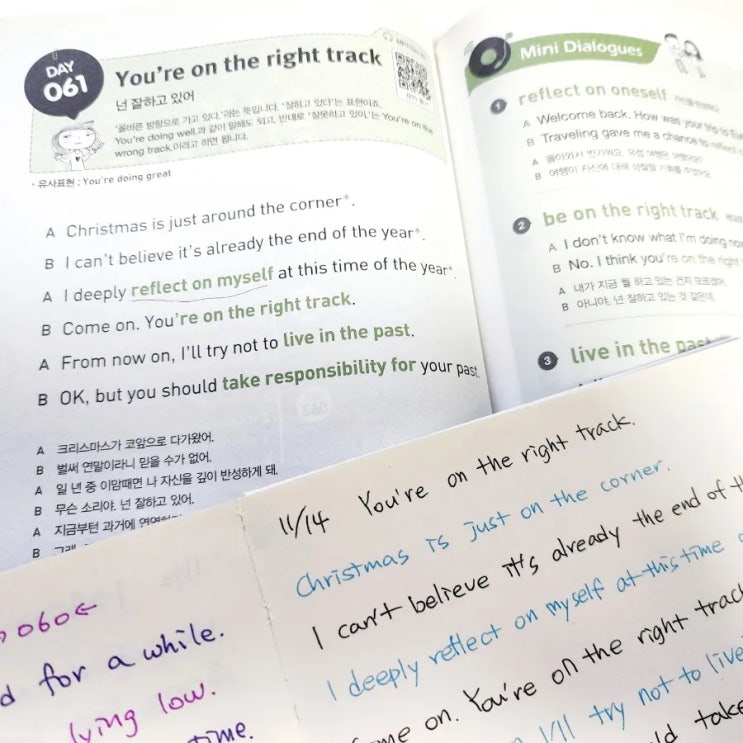 DAY
061
You're on the right track
넌 잘하고 있어
'올바른 방향으로 가고 있다.'라는 뜻입니다. '잘하고 있다'는 표현이죠.
You're doing well.과 같이 말해도 되고, 반대로 '잘못하고 있어.'는 You're on the
wrong track.이라고 하면 됩니다.
* 유사표현 : You're doing great
A Christmas is just around the corner*.
B I can't believe it's already the end of the year*.
A I deeply reflect on myself at this time of the year*.
B Come on. You're on the right track.
A From now on, I'll try not to live in the past.
B OK, but you should take responsibility for your past.
A 크리스마스가 코앞으로 다가왔어.
B 벌써 연말이라니 믿을 수가 없어.
A 일 년 중 이맘때면 나 자신을 깊이 반성하게 돼.
B 무슨 소리야. 넌 잘하고 있어.
A 지금부턴 과거에
B
Mini Dialogues
1 reflect on oneself
A Welcome back. How was your trip to
B Traveling gave me a chance to reflect
A 돌아와서 반가워요. 유럽 여행은
B 여행이 자신에 대해 성찰할 기회를
2 be on the right track
A I don't know what I'm doing
B No. I think you're on the right
A 내가 지금 뭘 하고 있는 건지 모르겠어.
B 아니야. 넌 잘하고 있는 것 같은데.
3 live in the past
060←
for a while.
lying low.
time.
11/14 You're on the right track.
Christmas is just on the corner.
I can't believe it's already the end of
I deeply reflect on myself at this time
on. You're on the right
I'll try not to live
take